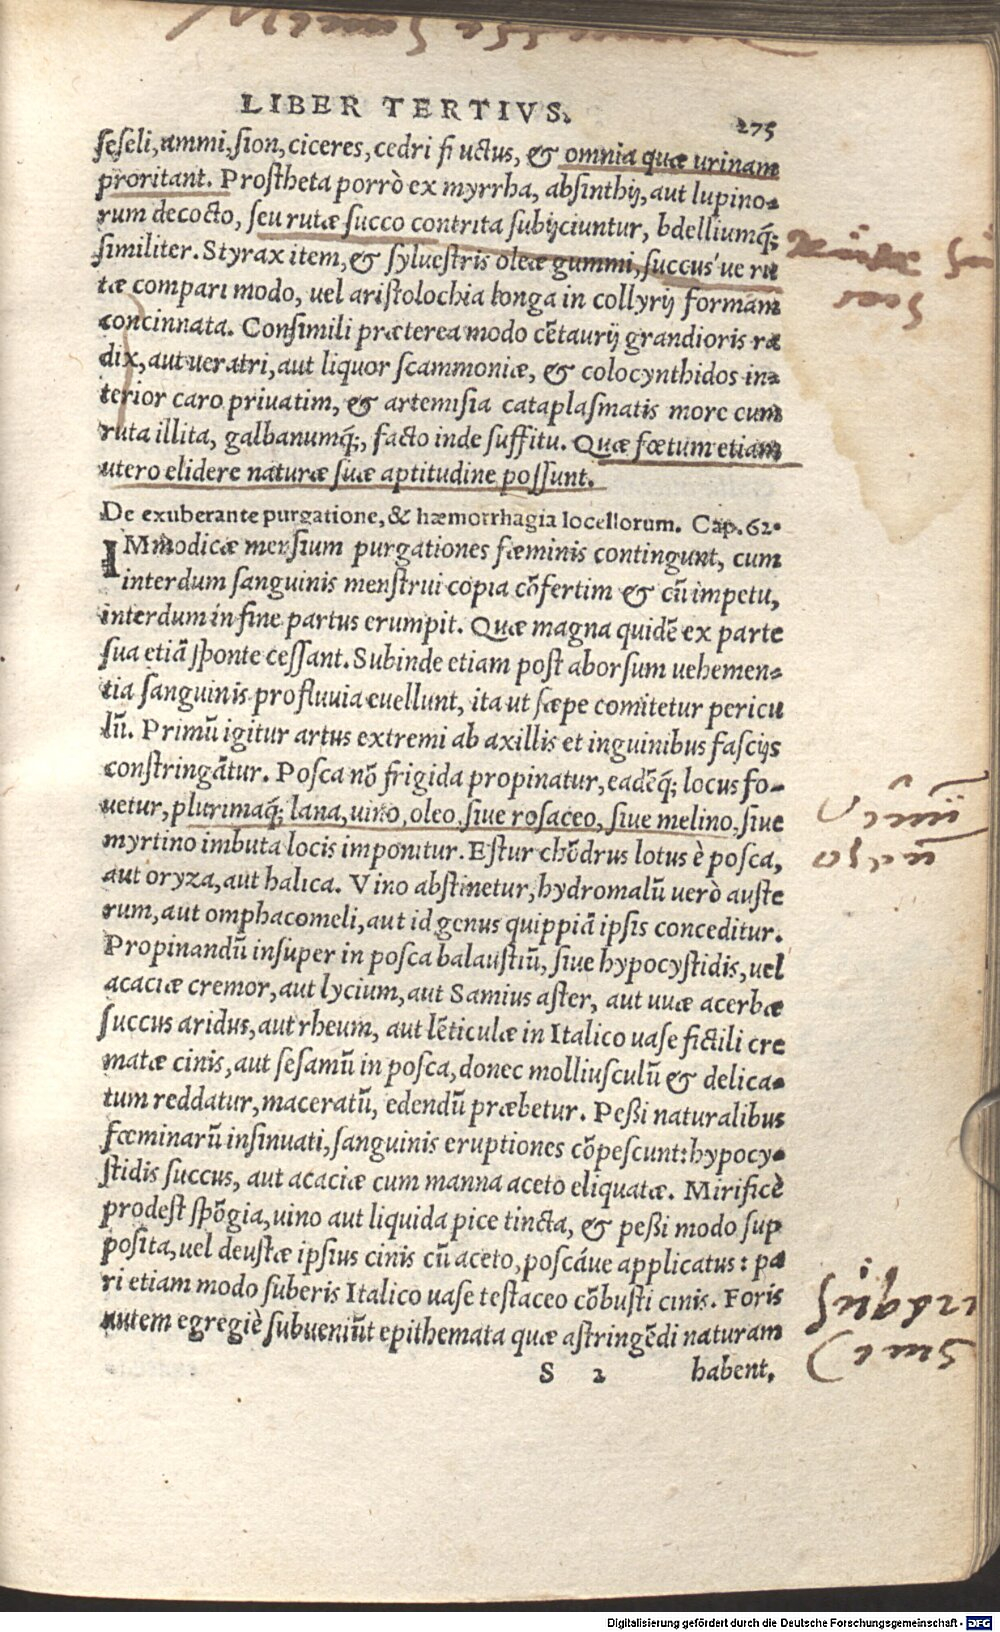 LIBER TERTIVS.
275
seseli, ammi, sion, ciceres, cedri fructus, & omnia quæ urinam
proritant. Prostheta porrò ex myrrha, absinthij, aut lupino-
rum decocto, seu rutæ succo contrita subijciuntur, bdelliumq́;
similiter. Styrax item, & syluestris oleæ gummi, succus ue ru
tæ compari modo, uel aristolochia longa in collyrij formam
concinnata. Consimili præterea modo cẽtaurij grandioris ra
dix, aut ueratri, aut liquor scammoniæ, & colocynthidos in-
terior caro priuatim, & artemisia cataplasmatis more cum
ruta illita, galbanumq́;, facto inde suffitu. Quæ fœtum etiam
utero elidere naturæ suæ aptitudine possunt.
De exuberante purgatione, & hæmorrhagia locellorum. Cap. 62.
IMmodicæ mensium purgationes fæminis contingunt, cum
interdum sanguinis menstrui copia cõfertim & cũ impetu,
interdum in fine partus erumpit. Quæ magna quidẽ ex parte
sua etiã sponte cessant. Subinde etiam post aborsum uehemen-
tia sanguinis profluuia euellunt, ita ut sæpe comitetur pericu
lũ. Primũ igitur artus extremi ab axillis et inguinibus fascijs
constringãtur. Posca nõ frigida propinatur, eadẽq́; locus fo-
uetur, plurimaq́; lana, uino, oleo, siue rosaceo, siue melino, siue
myrtino imbuta locis imponitur. Estur chõdrus lotus è posca,
aut oryza, aut halica. Vino abstinetur, hydromalũ verò auste
rum, aut omphacomeli, aut id genus quippiã ipsis conceditur.
Propinandũ insuper in posca balaustiũ, siue hypocystidis, uel
acaciæ cremor, aut lycium, aut Samius aster, aut uuæ acerbæ
succus aridus, aut rheum, aut lẽticulæ in Italico uase fictili cre
matæ cinis, aut sesamũ in posca, donec molliusculũ & delica-
tum reddatur, maceratũ, edendũ præbetur. Peßi naturalibus
fœminarũ insinuati, sanguinis eruptiones cõpescunt: hypocy-
stidis succus, aut acaciæ cum manna aceto eliquatæ. Mirificè
prodest spõgia, uino aut liquida pice tincta, & peßi modo sup
posita, uel deustæ ipsius cinis cũ aceto, poscáue applicatus: pa
ri etiam modo suberis Italico uase testaceo cõbusti cinis. Foris
autem egregiè subueniũt epithemata quæ astringẽdi naturam
S 2 habent.
Digitalisierung gefördert durch die Deutsche Forschungsgemeinschaft - DFG